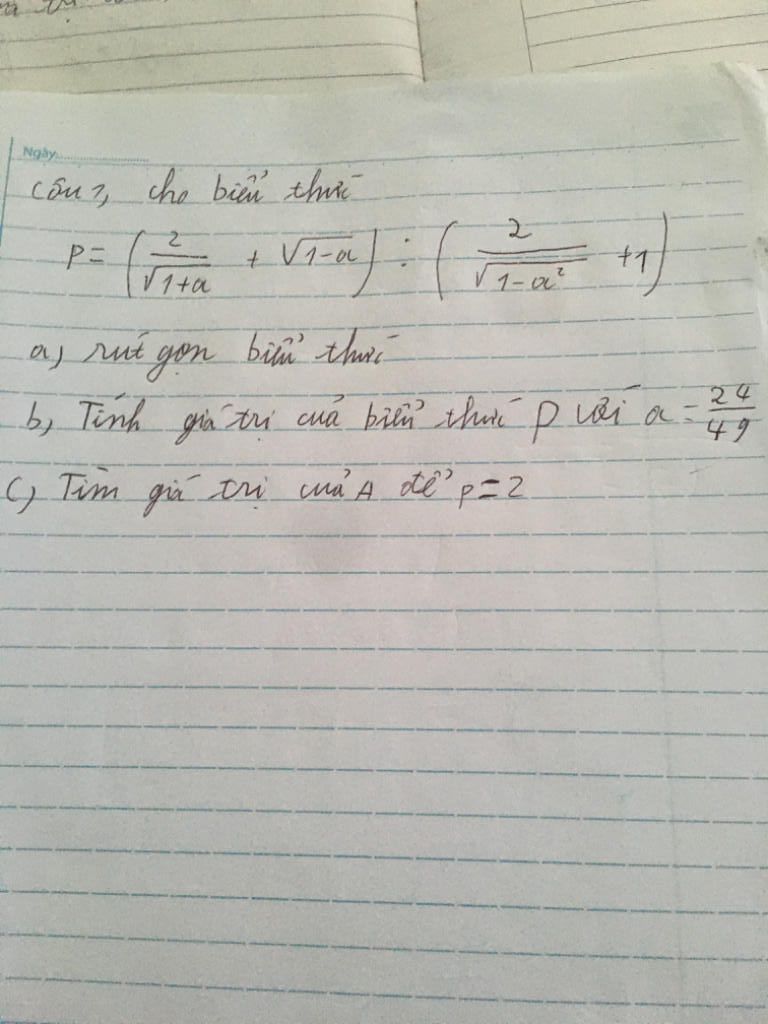 Ngày
Câu 1, cho biểu thức
P = (2/√(1+a) + √(1-a)) : (2/√(1-a²) + 1)
a, rút gọn biểu thức
b, Tính giá trị của biểu thức P với a = 24/49
c, Tìm giá trị của A để P = 2